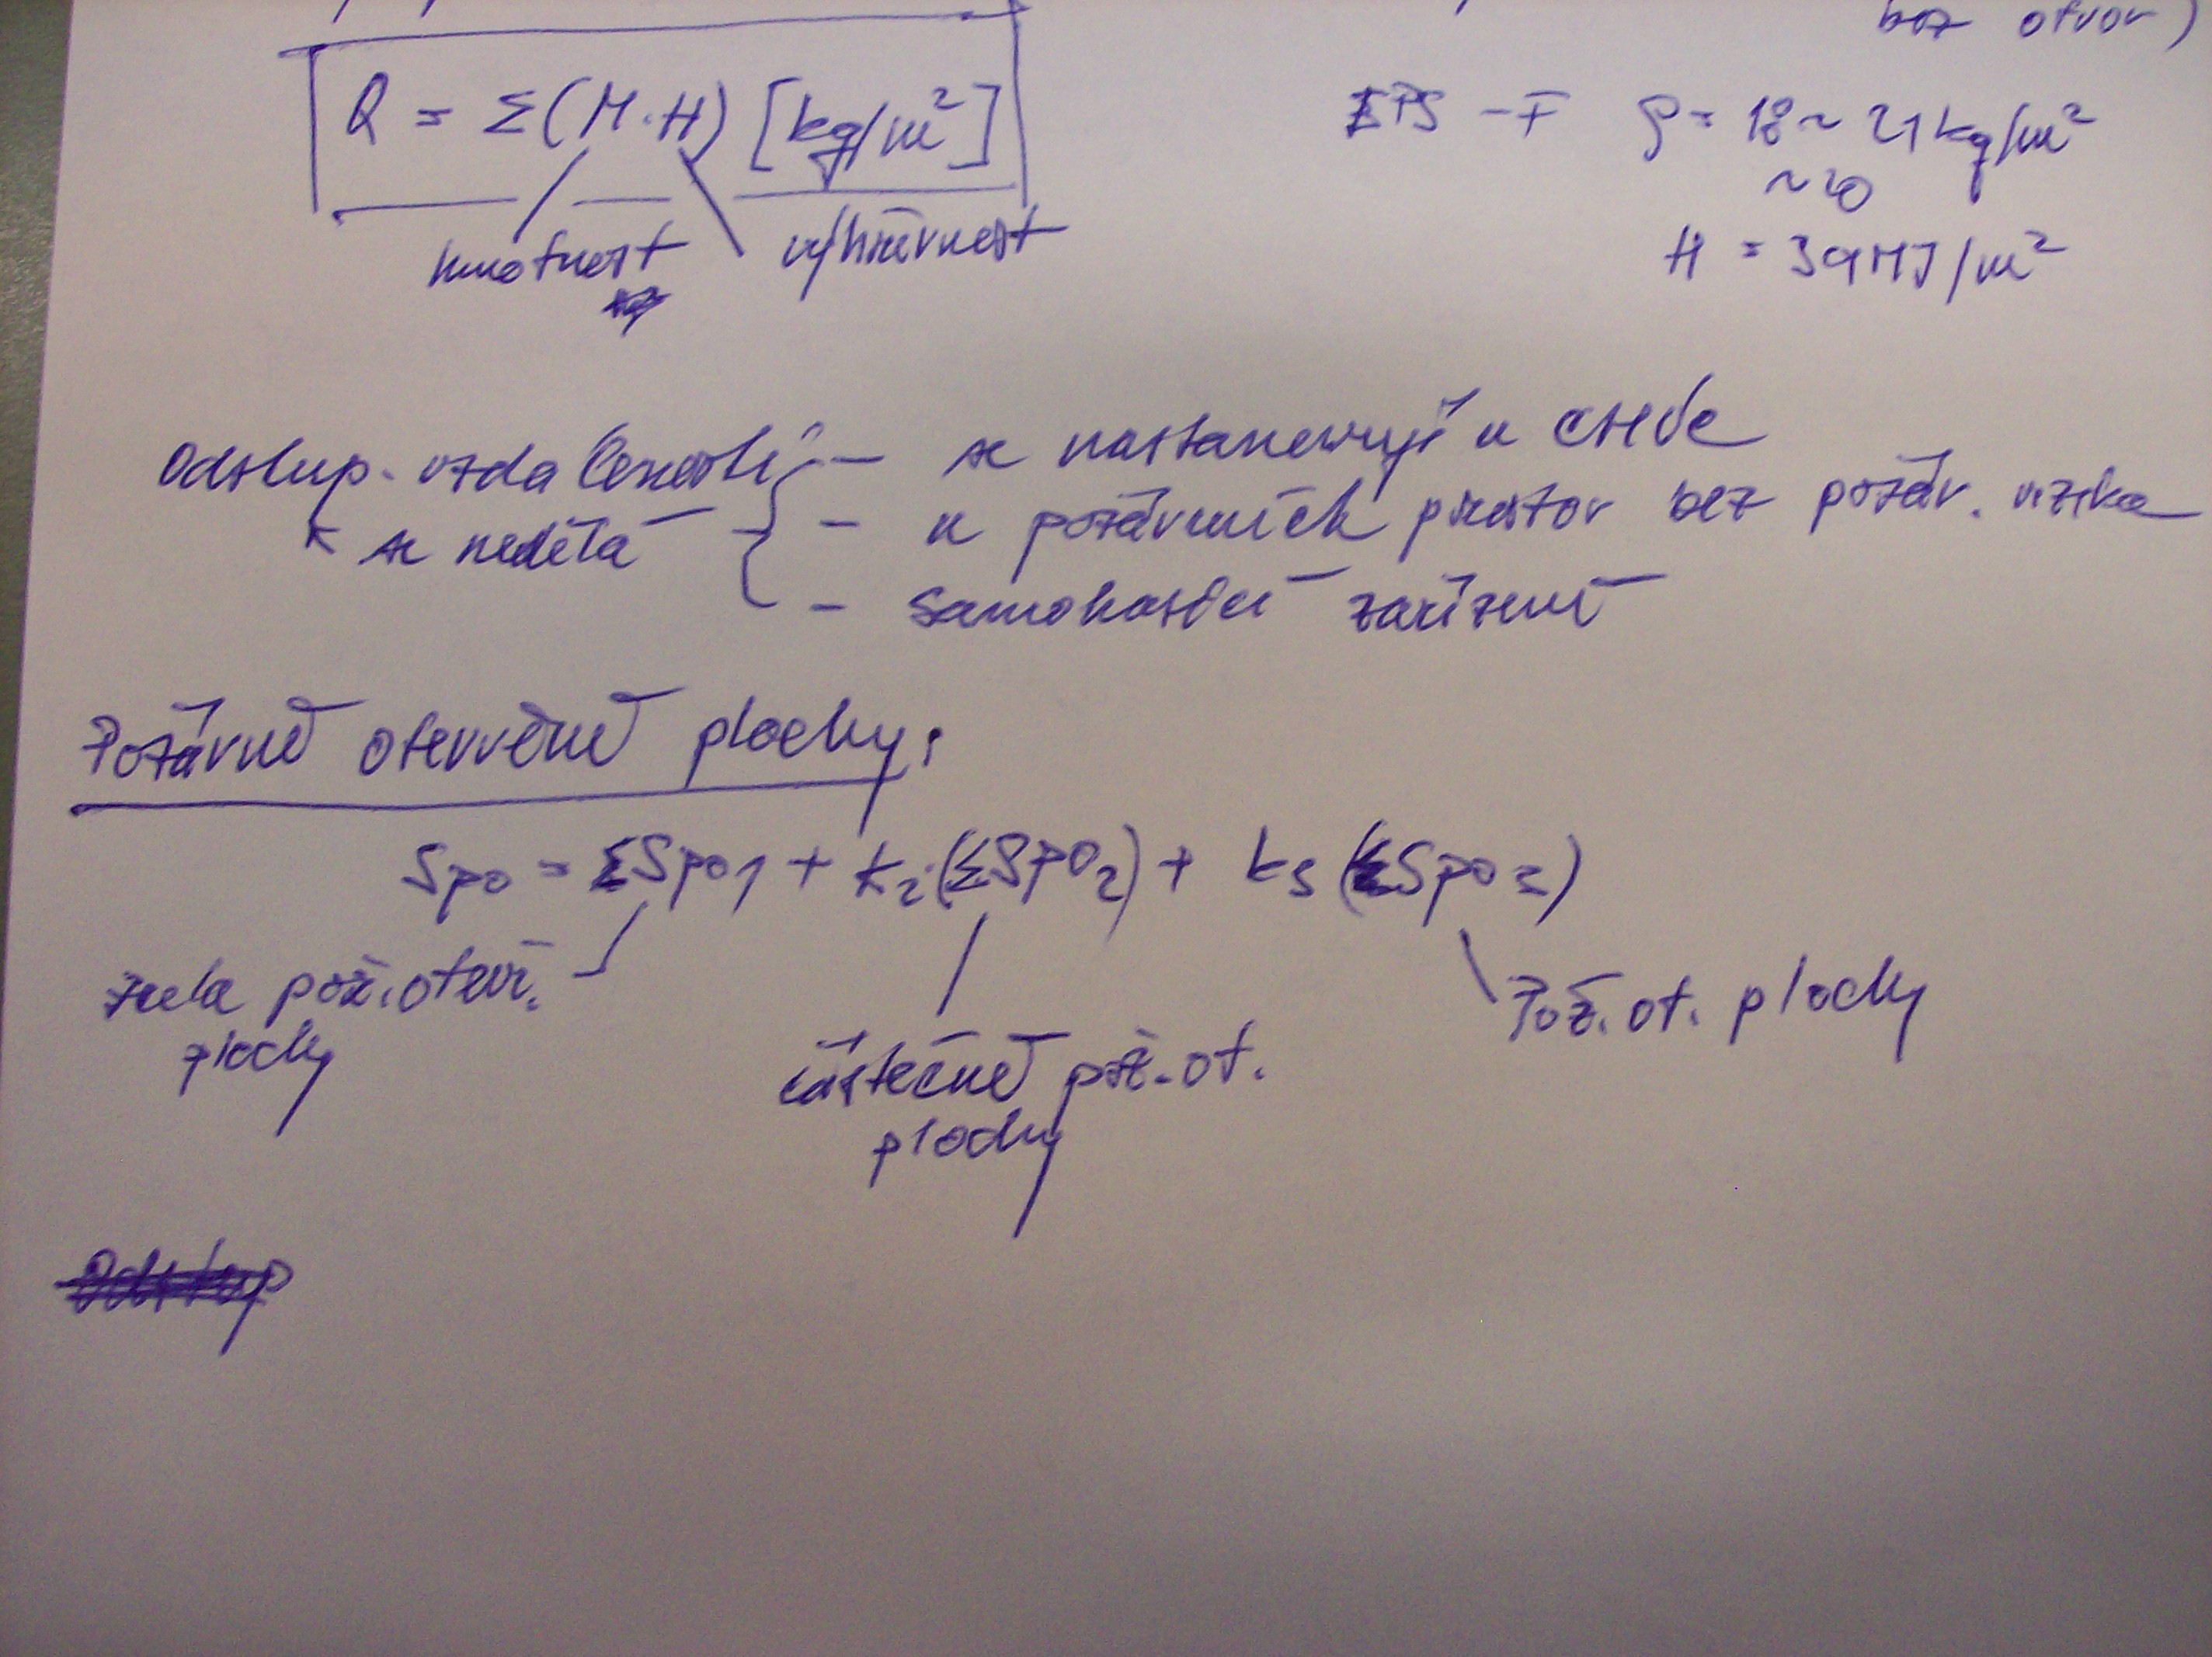 bez otvor)
Q = Σ(M·H) [kg/m²]
hmotnost výhřevnost
EPS - F ρ = 18 ~ 21 kg/m²
~20
H = 39 MJ/m²
Odstup. vzdálenosti - se nestanovují u CHÚC
se nedělá - u požárních prostor bez požár. rizika
- samohasící zařízení
Požárně otevřené plochy:
Spo = ΣSpo1 + k2·(ΣSpO2) + k3 (ΣSpo3)
zcela pož. otevř.
plochy
částečně pož. ot.
plochy
Pož. ot. plochy